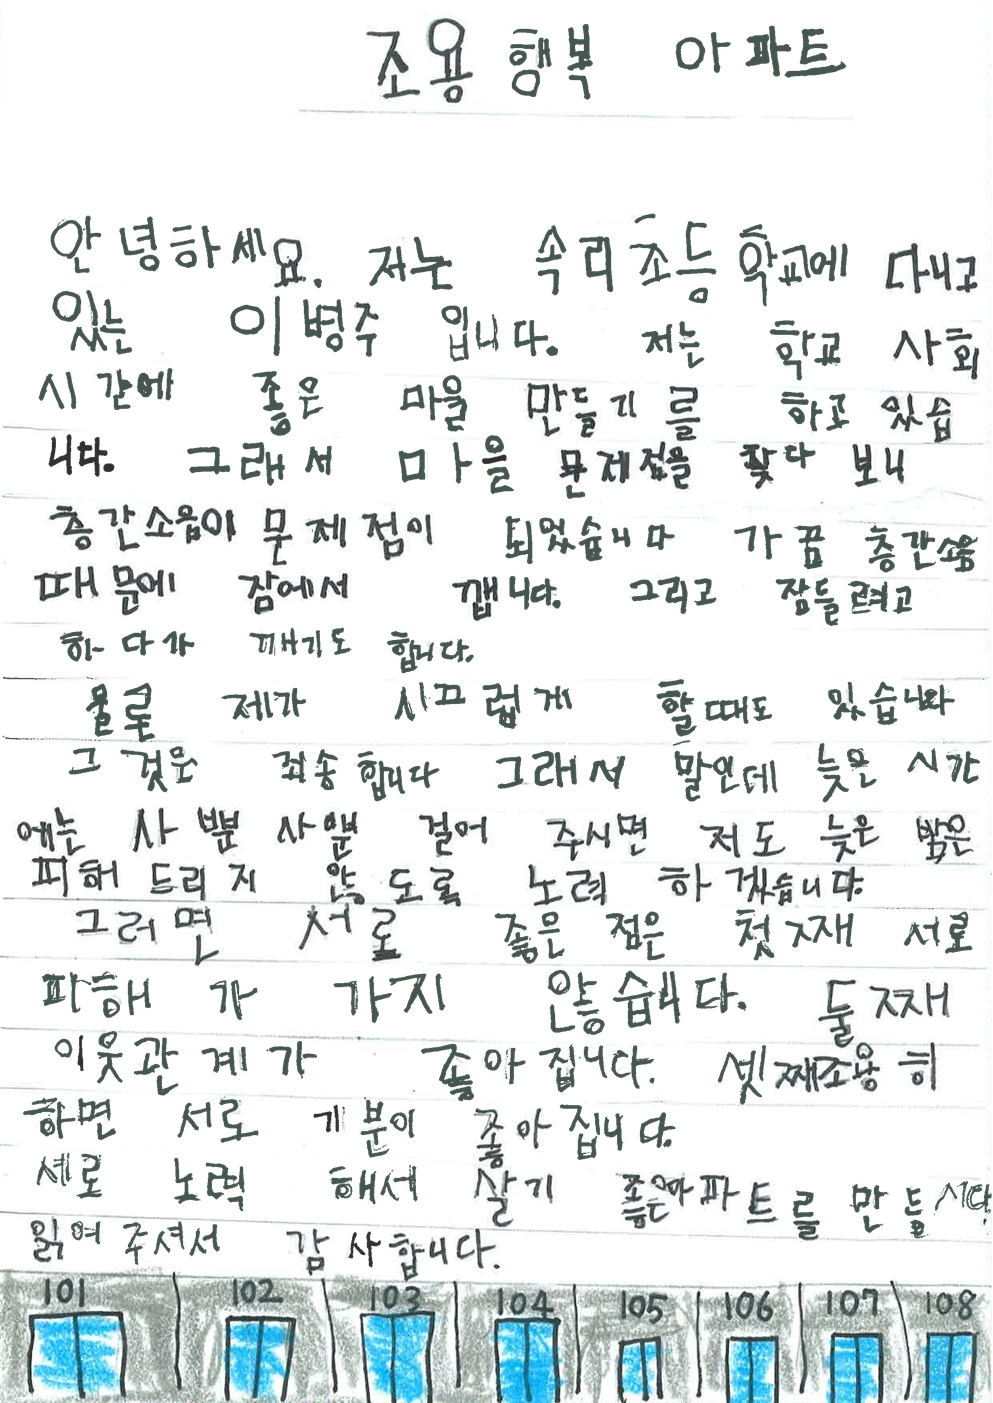 조용 행복 아파트
안녕하세요. 저는 속리초등학교에 다니고
있는 이병주 입니다. 저는 학교 사회
시간에 좋은 마을 만들기를 하고 있습
니다. 그래서 마을 문제점을 찾다 보니
층간소음이 문제점이 되었습니다 가끔 층간소음
때문에 잠에서 깹니다. 그리고 잠들려고
하다가 깨기도 합니다.
물론 제가 시끄럽게 할때도 있습니다
그것은 죄송합니다 그래서 말인데 늦은 시간
에는 사뿐 사뿐 걸어 주시면 저도 늦은 밤은
피해 드리지 않도록 노력 하겠습니다
그러면 서로 좋은 점은 첫째 서로
파해가 가지 안습니다. 둘째
이웃관계가 좋아집니다. 셋째조용히
하면 서로 기분이 좋아집니다.
세로 노력 해서 살기 좋은아파트를 만듭시다
읽여주셔서 감사합니다.
101 102 103 104 105 106 107 108